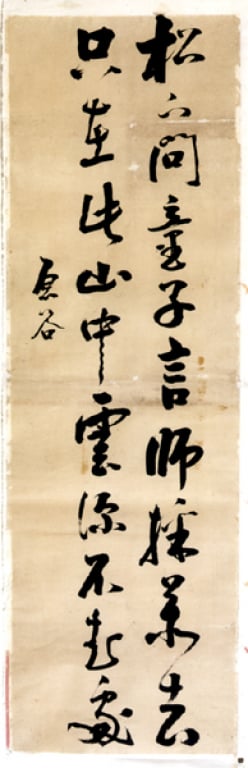 松下問童子言師採藥去
只在此山中雲深不知處
谷